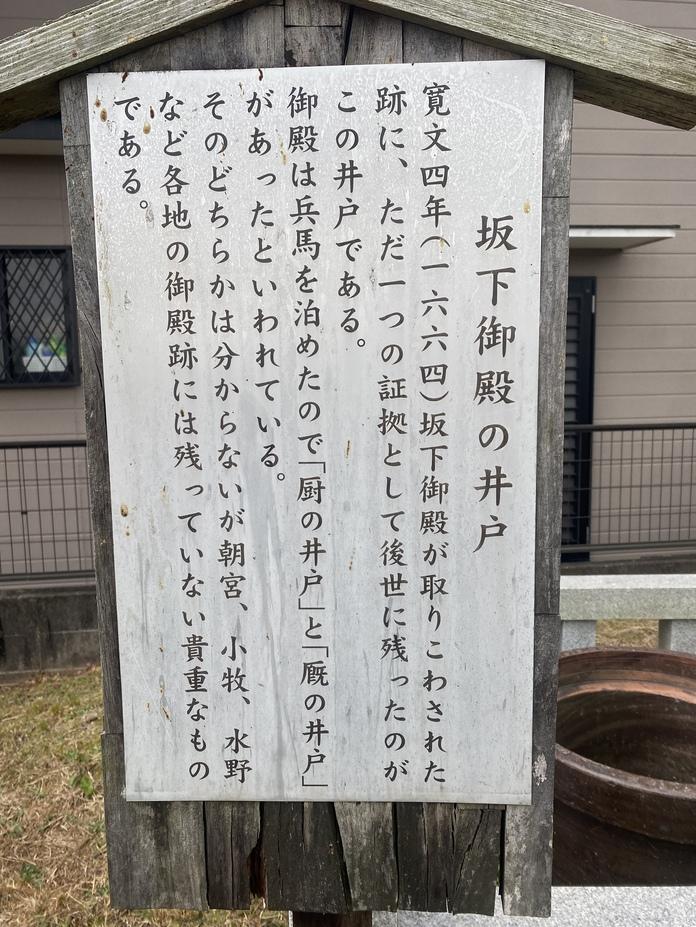 坂下御殿の井戸
寛文四年(一六六四)坂下御殿が取りこわされた
跡に、ただ一つの証拠として後世に残ったのが
この井戸である。
御殿は兵馬を泊めたので「厨の井戸」と「厩の井戸」
があったといわれている。
そのどちらかは分からないが朝宮、小牧、水野
など各地の御殿跡には残っていない貴重なもの
である。